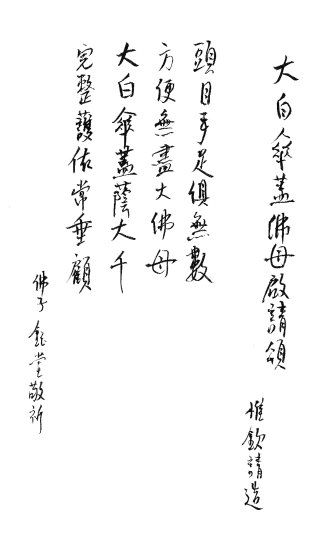 大白傘蓋佛母啟請頌
惟欽請造
頭目手足俱無數
方便無盡大佛母
大白傘蓋蔭大千
完整護佑常垂顧
佛子鈺堂敬祈